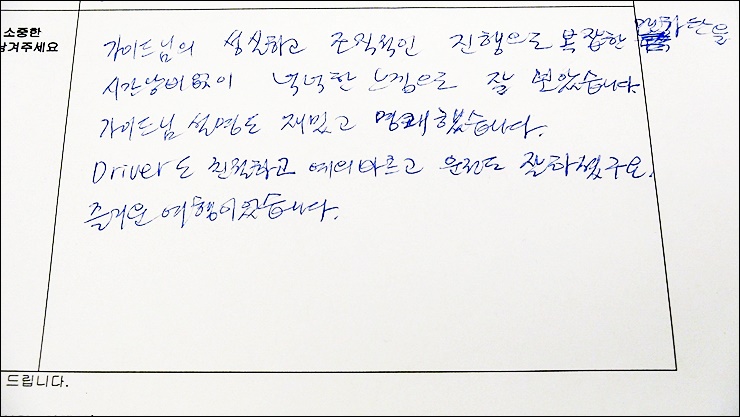 소중한
남겨주세요
가이드님의 성실하고 조직적인 진행으로 복잡한 캐나다를
시간낭비없이 넉넉한 느낌으로 잘 보았습니다.
가이드님 설명도 재밌고 명쾌했습니다.
Driver도 친절하고 예의바르고 운전도 잘하셨구요.
즐거운 여행이었습니다.
드립니다.